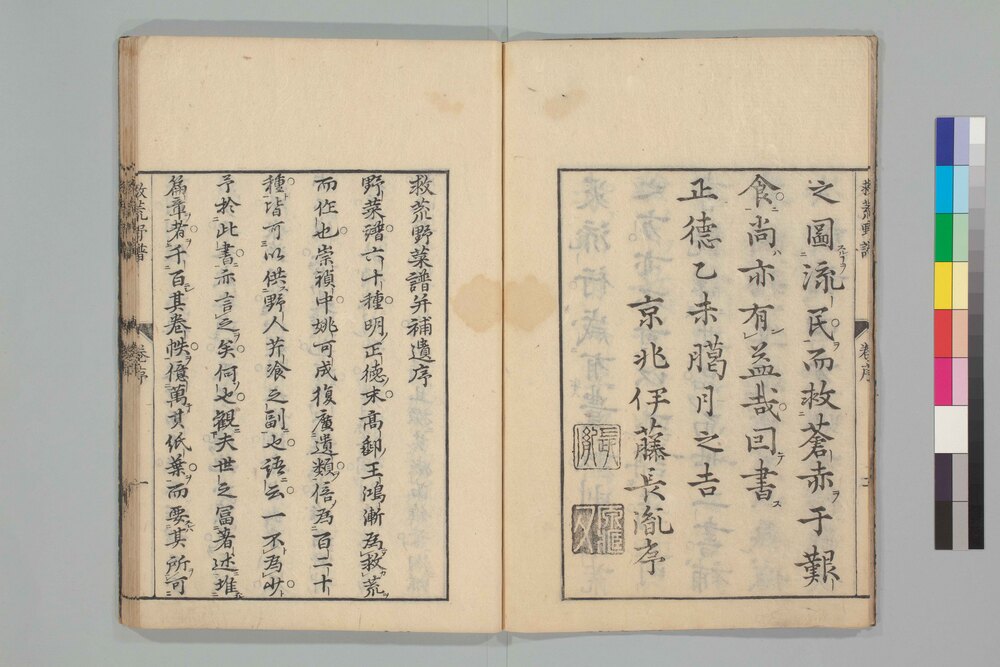 之圖流民而救蒼赤于艱
食尚亦有益哉囙書
正德乙未臈月之吉
京兆伊藤長胤序
救荒野菜譜并補遺序
野菜譜六十種明正德末高郵王鴻漸為救荒
而作也崇禎中姚可成復廣遺類倍為百二十
種皆可以供野人芥飡之副也語云一不為少
予於此書亦言之矣何也觀夫世之冨著述堆
篇章者千百其卷帙億萬其紙葉而要其所可